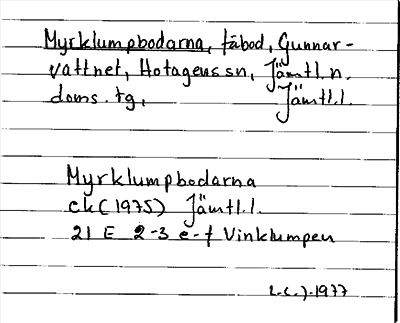 Myrklumpbodarna, fäbod, Gunnar-
vattnet, Hotagens sn, Jämtl. n.
doms. tg, Jämtl. l.
Myrklumpbodarna
ek (1975) Jämtl. l.
21 E 2-3 e-f Vinklumpen
1977